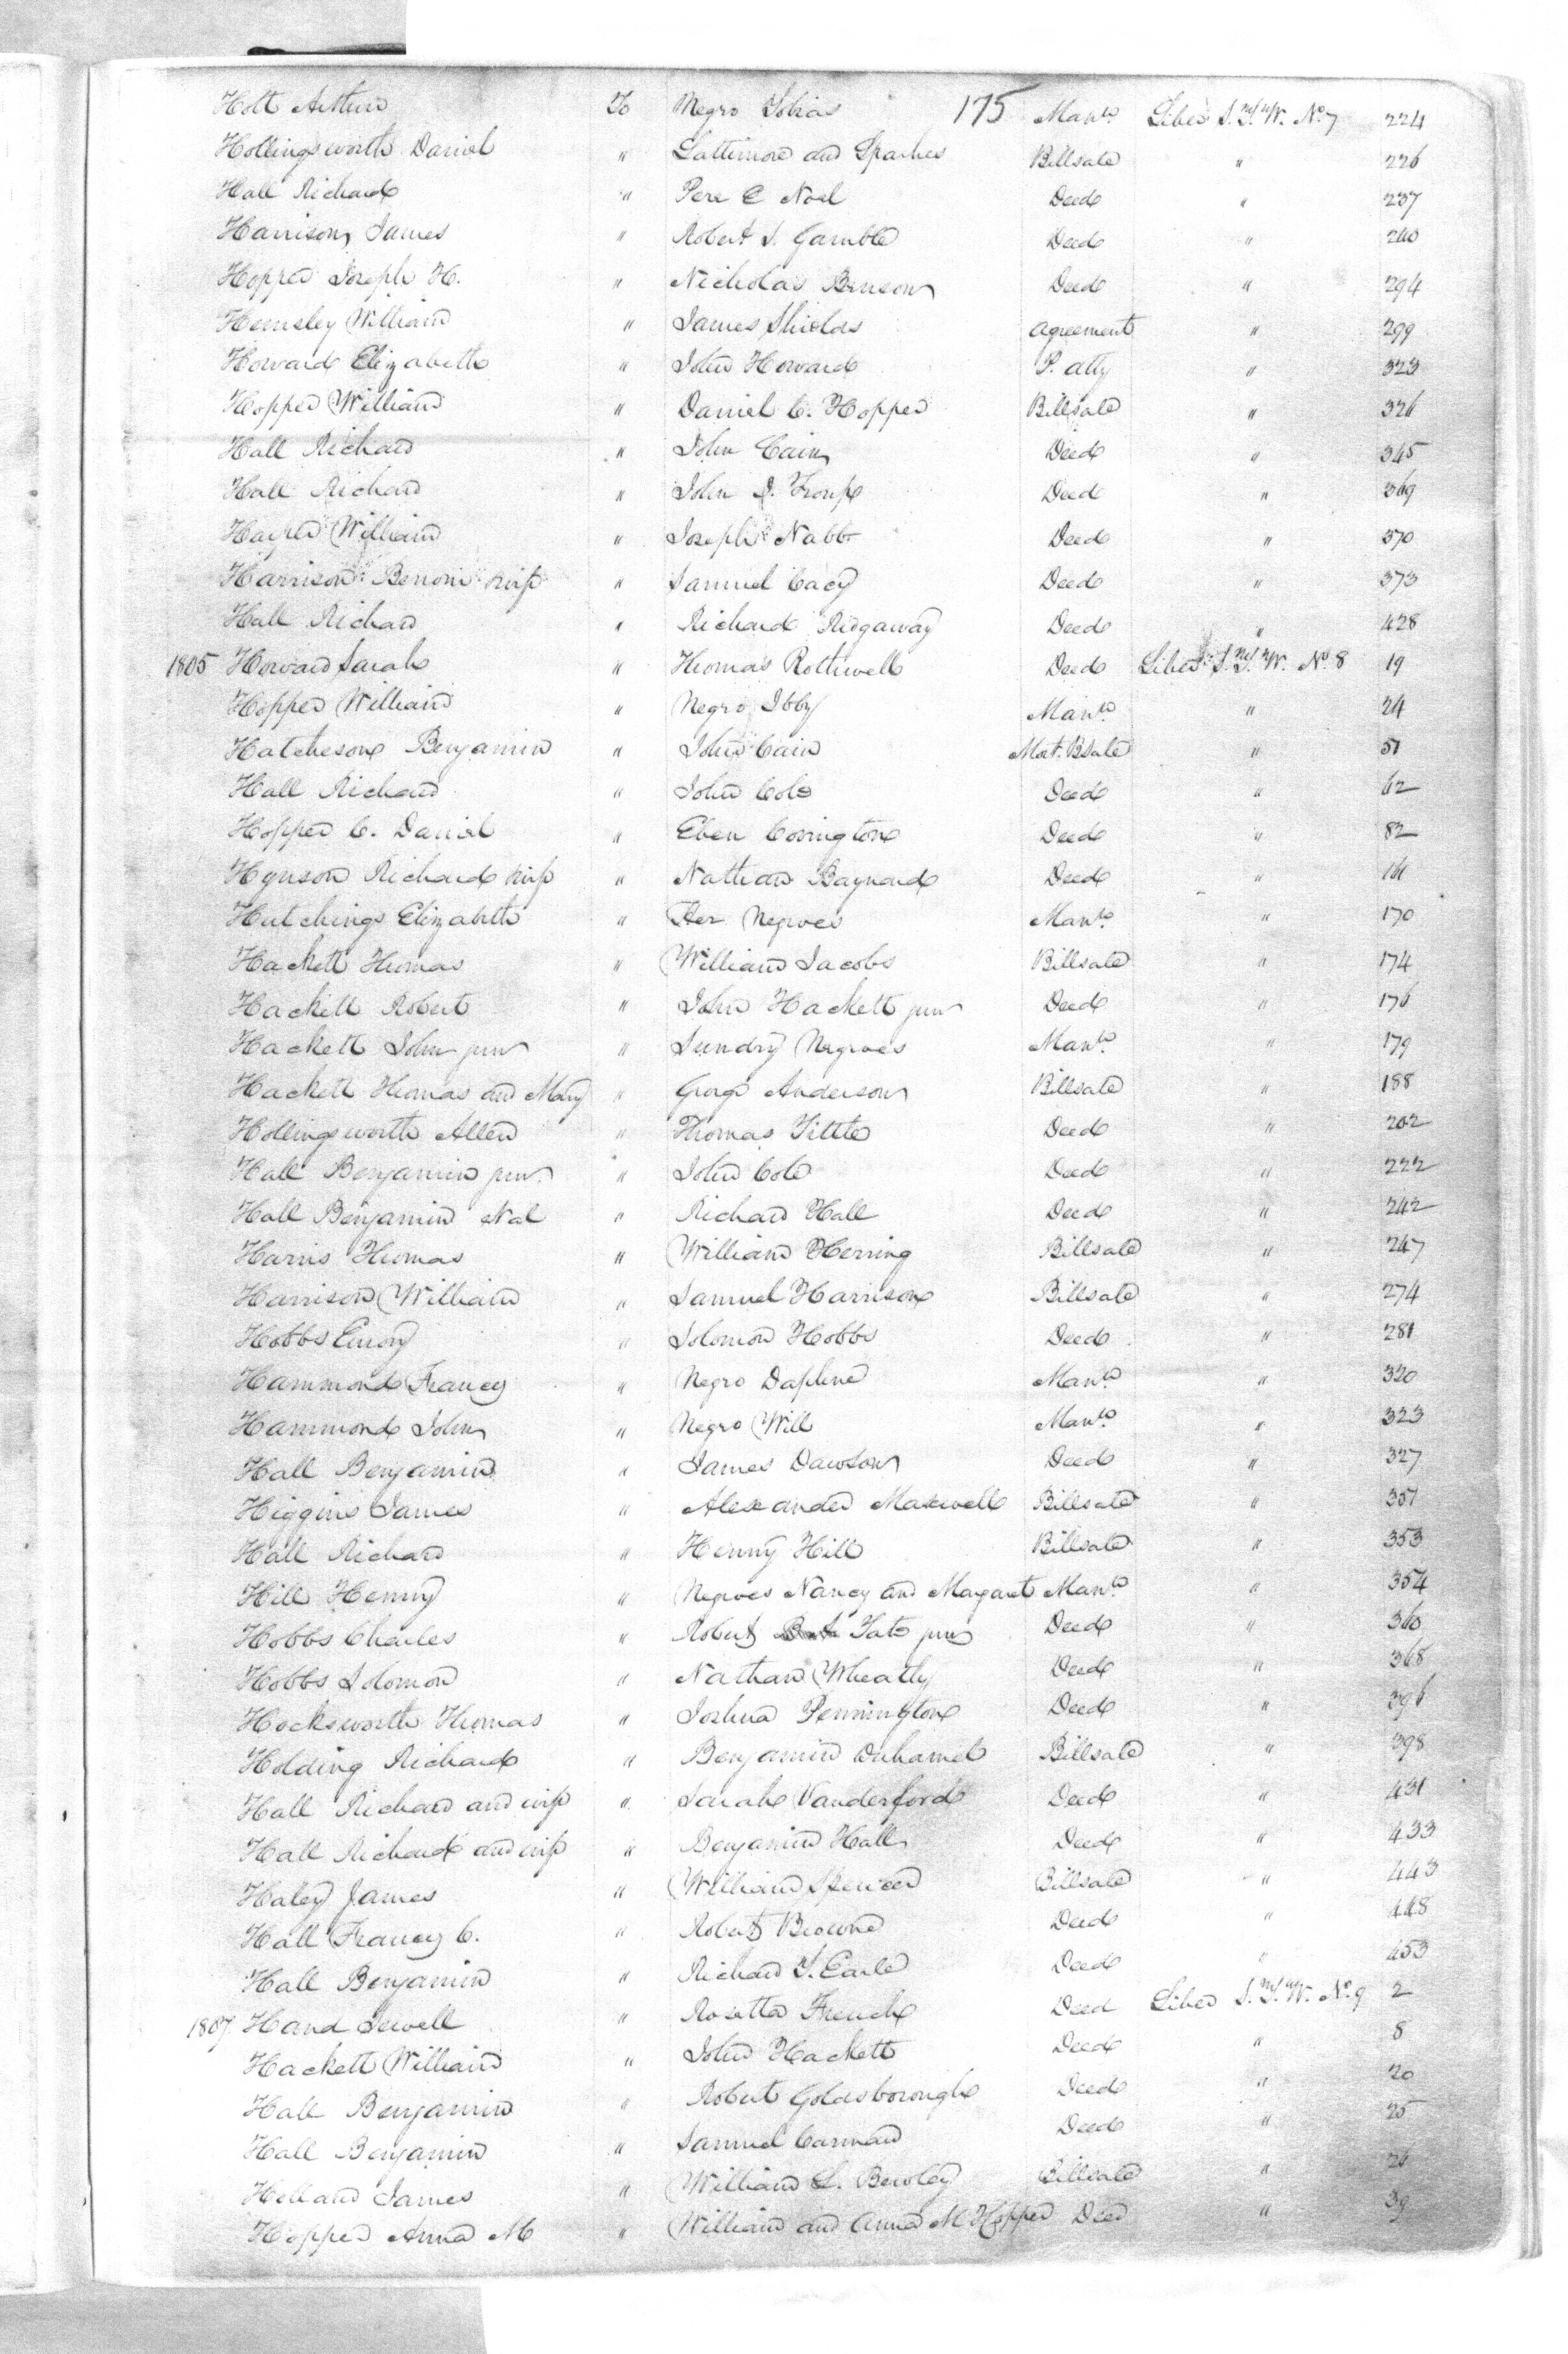 175
Holt Arthur To Negro Tobias Manⁿ Liber S.T.W. No 7 224
Hollingsworth Daniel " Lattimore and Sparkes Billsale " 226
Hall Richard " Pere E Noel Deed " 237
Harrison James " Robert S. Gamble Deed " 240
Hopper Joseph H. " Nicholas Benson Deed " 294
Hemsley William " James Shields Agreement " 299
Howard Elizabeth " John Howard P. atty " 323
Hopper William " Daniel C. Hopper Billsale " 326
Hall Richard " John Cain Deed " 345
Hall Richard " John Deed " 369
Harper William " Joseph Nabb Deed " 370
Harrison Benoni wife " Samuel Cacy Deed " 373
Hall Richard " Richard Ridgaway Deed " 428
1805 Howard Sarah " Thomas Rothwell Deed Liber S.T.W. No 8 19
Hopper William " Negro Ibby Manⁿ " 24
Hatcheson Benjamin " John Cain Mort. BSale " 51
Hall Richard " John Cole Deed " 62
Hopper C. Daniel " Eben Covington Deed " 82
Hynson Richard wife " Nathan Baynard Deed " 161
Hutchings Elizabeth " Her Negroes Manⁿ " 170
Hackett Thomas " William Jacobs Billsale " 174
Hackett Robert " John Hackett junr Deed " 176
Hackett John junr " Sundry Negroes Manⁿ " 179
Hackett Thomas and Mary " George Anderson Billsale " 188
Hollingsworth Allen " Thomas Tittle Deed " 202
Hall Benjamin junr " John Cole Deed " 222
Hall Benjamin et al " Richard Hall Deed " 242
Harris Thomas " William Herring Billsale " 247
Harrison William " Samuel Harrison Billsale " 274
Hobbs Emory " Solomon Hobbs Deed " 281
Hammond Francy " Negro Daphne Manⁿ " 320
Hammond John " Negro Will Manⁿ " 323
Hall Benjamin " James Dawson Deed " 327
Higgins James " Alexander Maxwell Billsale " 351
Hall Richard " Henny Hill Billsale " 353
Hill Henny " Negroes Nancy and Margaret Manⁿ " 354
Hobbs Charles " Robert Tate junr Deed " 360
Hobbs Solomon " Nathan Wheatly Deed " 368
Hocksworth Thomas " Joshua Pennington Deed " 396
Holding Richard " Benjamin Duhamel Billsale " 398
Hall Richard and wife " Sarah Vanderford Deed " 431
Hall Richard and wife " Benjamin Hall Deed " 433
Haley James " William Spencer Billsale " 443
Hall Francy C. " Robert Browne Deed " 448
Hall Benjamin " Richard T. Earle Deed " 453
1807 Hand Sewell " Rosetta French Deed Liber S.T.W. No 9 2
Hackett William " John Hackett Deed " 8
Hall Benjamin " Robert Goldsborough Deed " 20
Hall Benjamin " Samuel Carman Deed " 25
Holland James " William S. Bewley Billsale " 26
Hopper Anna M " William and Anna M Hopper Deed " 39